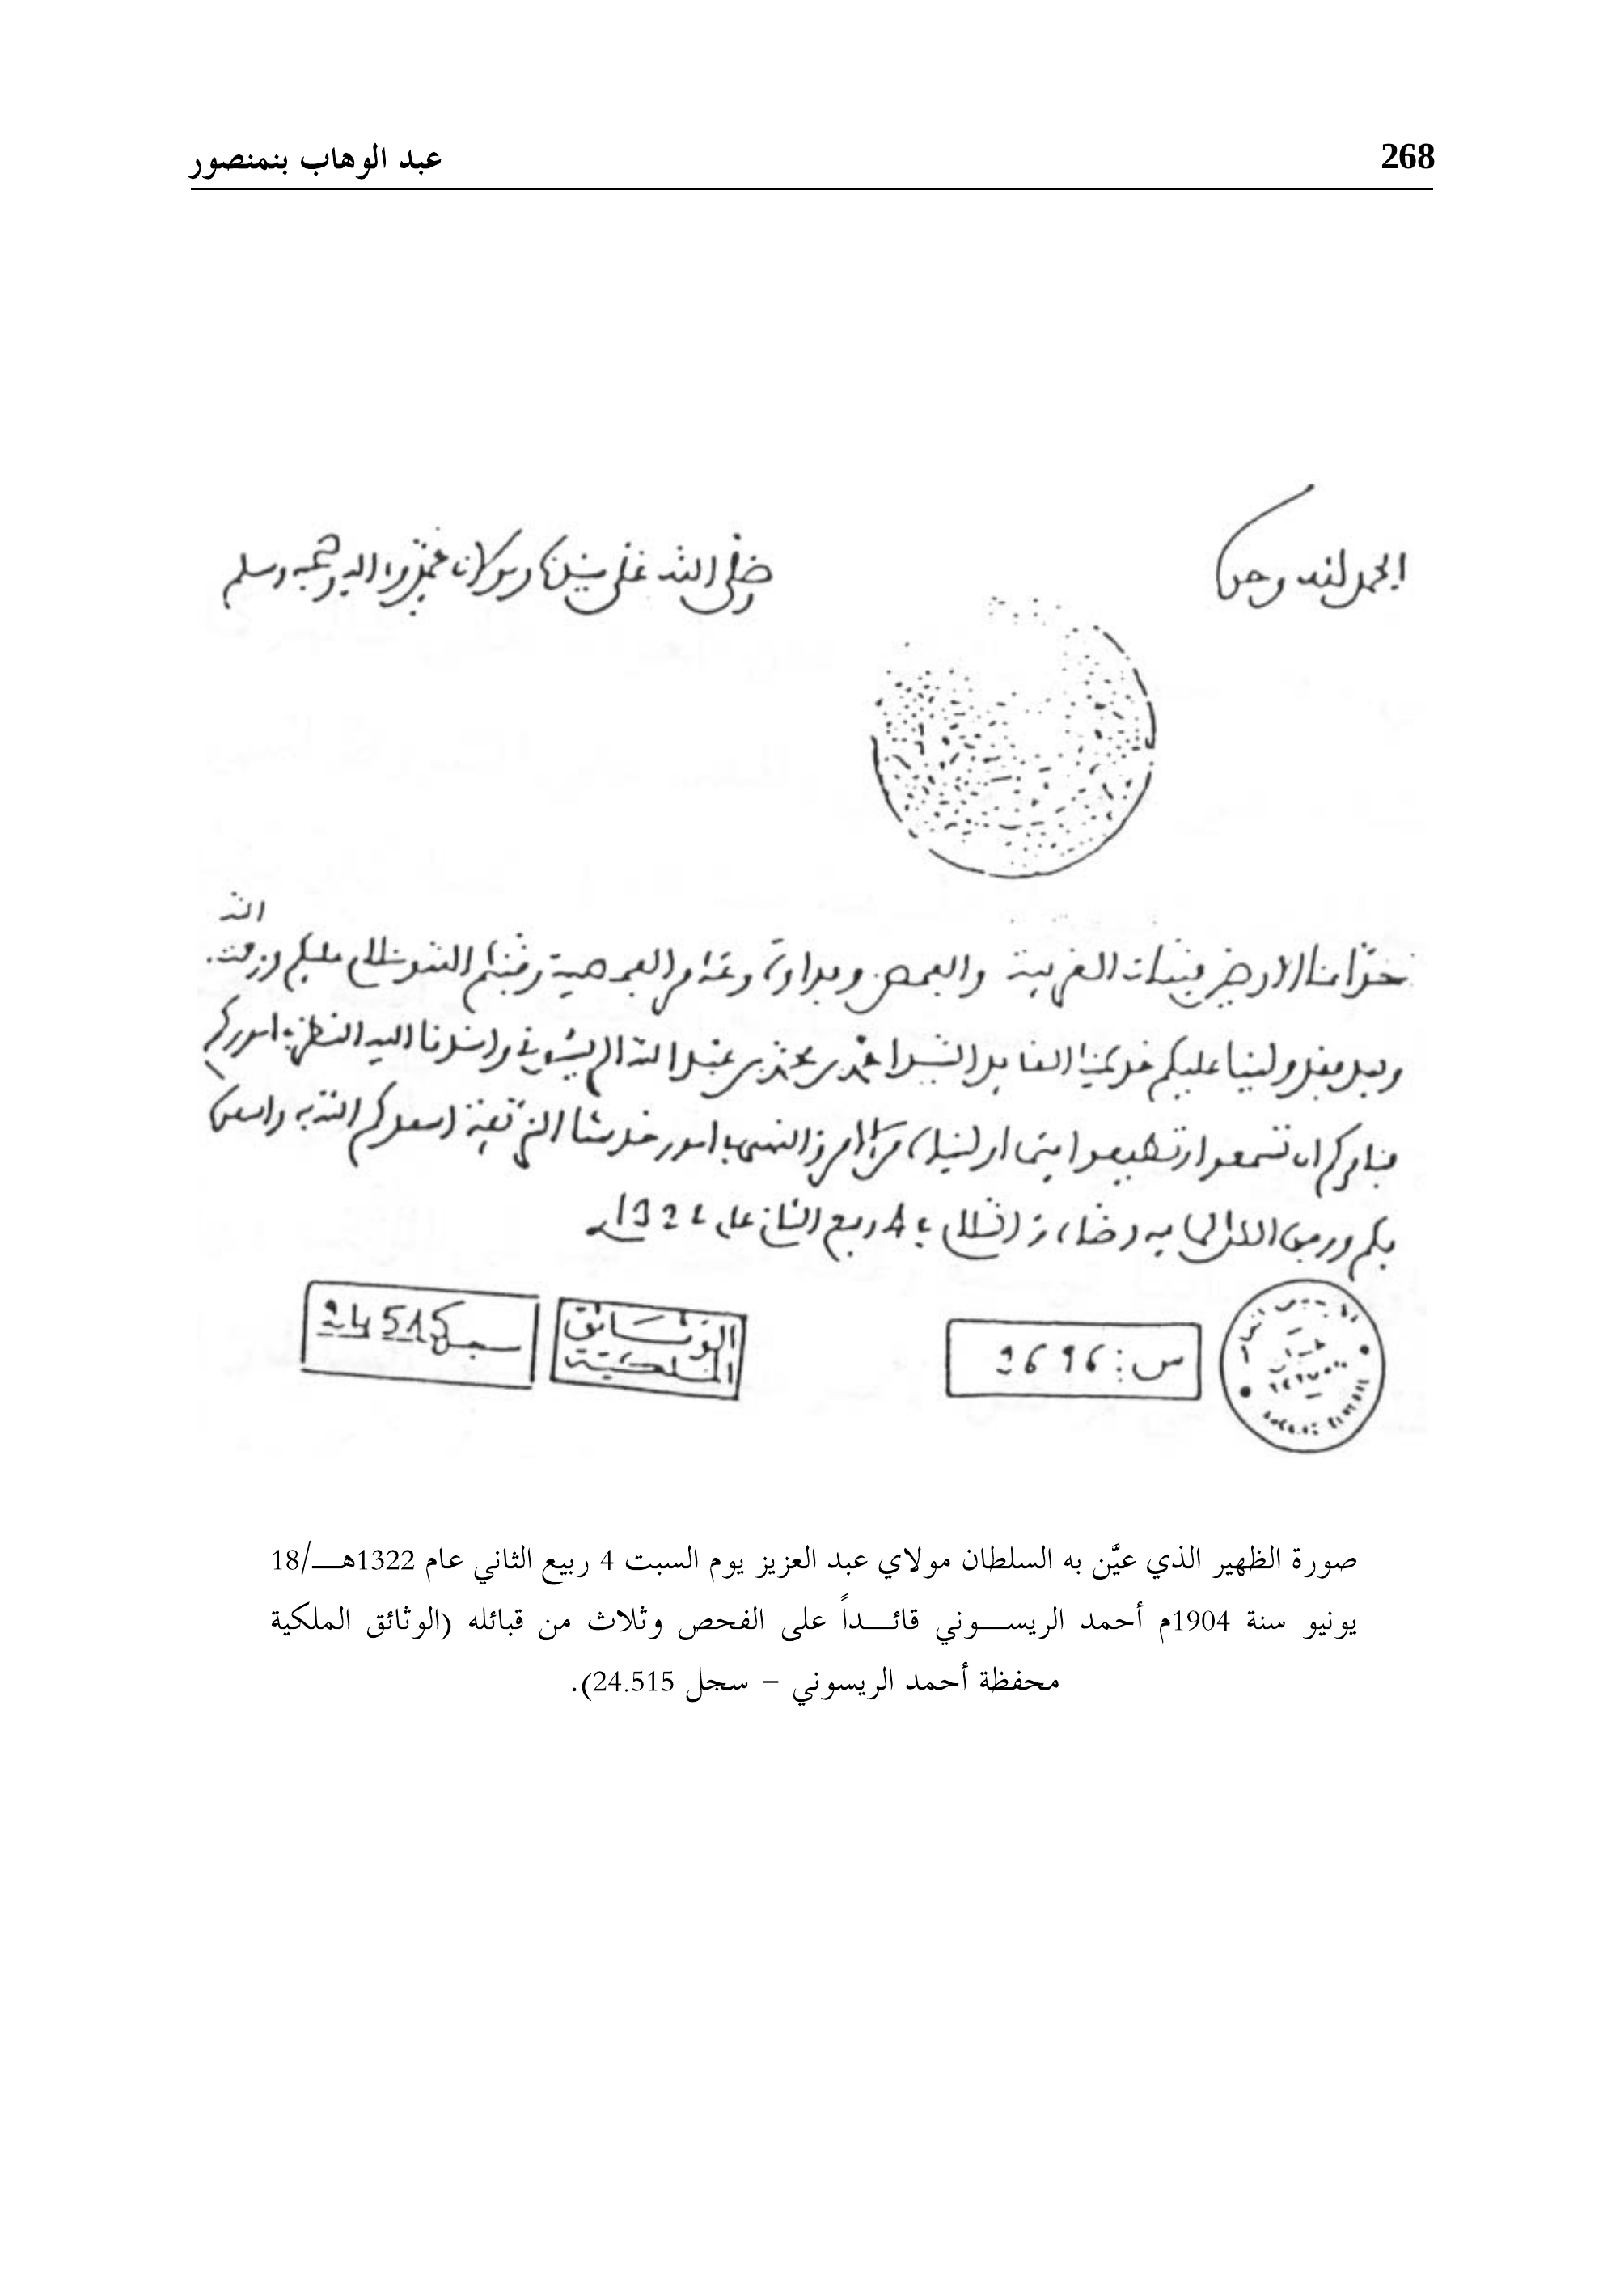 268
عبد الوهاب بنمنصور
الحمد لله وحده
وصلى الله على سيدنا ومولانا محمد وءاله وصحبه وسلم
خدامنا الارضين قبيلات الغربية والفحص وبداوة وعامر الفحصية وفقكم الله وسلام عليكم ورحمت الله
وبعد فقد ولينا عليكم خديمنا القايد السيد احمد بن محمد بن عبد الله الريسوني واسندنا اليه النظر في اموركم
فنامركم ان تسمعوا وتطيعوا فيما اوليناه من الامر والنهي في امور خدمتنا الشريفة اسعدكم الله به واسعده
بكم ووفق الكل لما فيه رضاه والسلام في 4 ربيع الثاني عام 1322
س: 2696
الوثائق
الملكية
سجل 24515
صورة الظهير الذي عيَّن به السلطان مولاي عبد العزيز يوم السبت 4 ربيع الثاني عام 1322هـ/18
يونيو سنة 1904م أحمد الريسوني قائداً على الفحص وثلاث من قبائله (الوثائق الملكية
محفظة أحمد الريسوني – سجل 24.515).